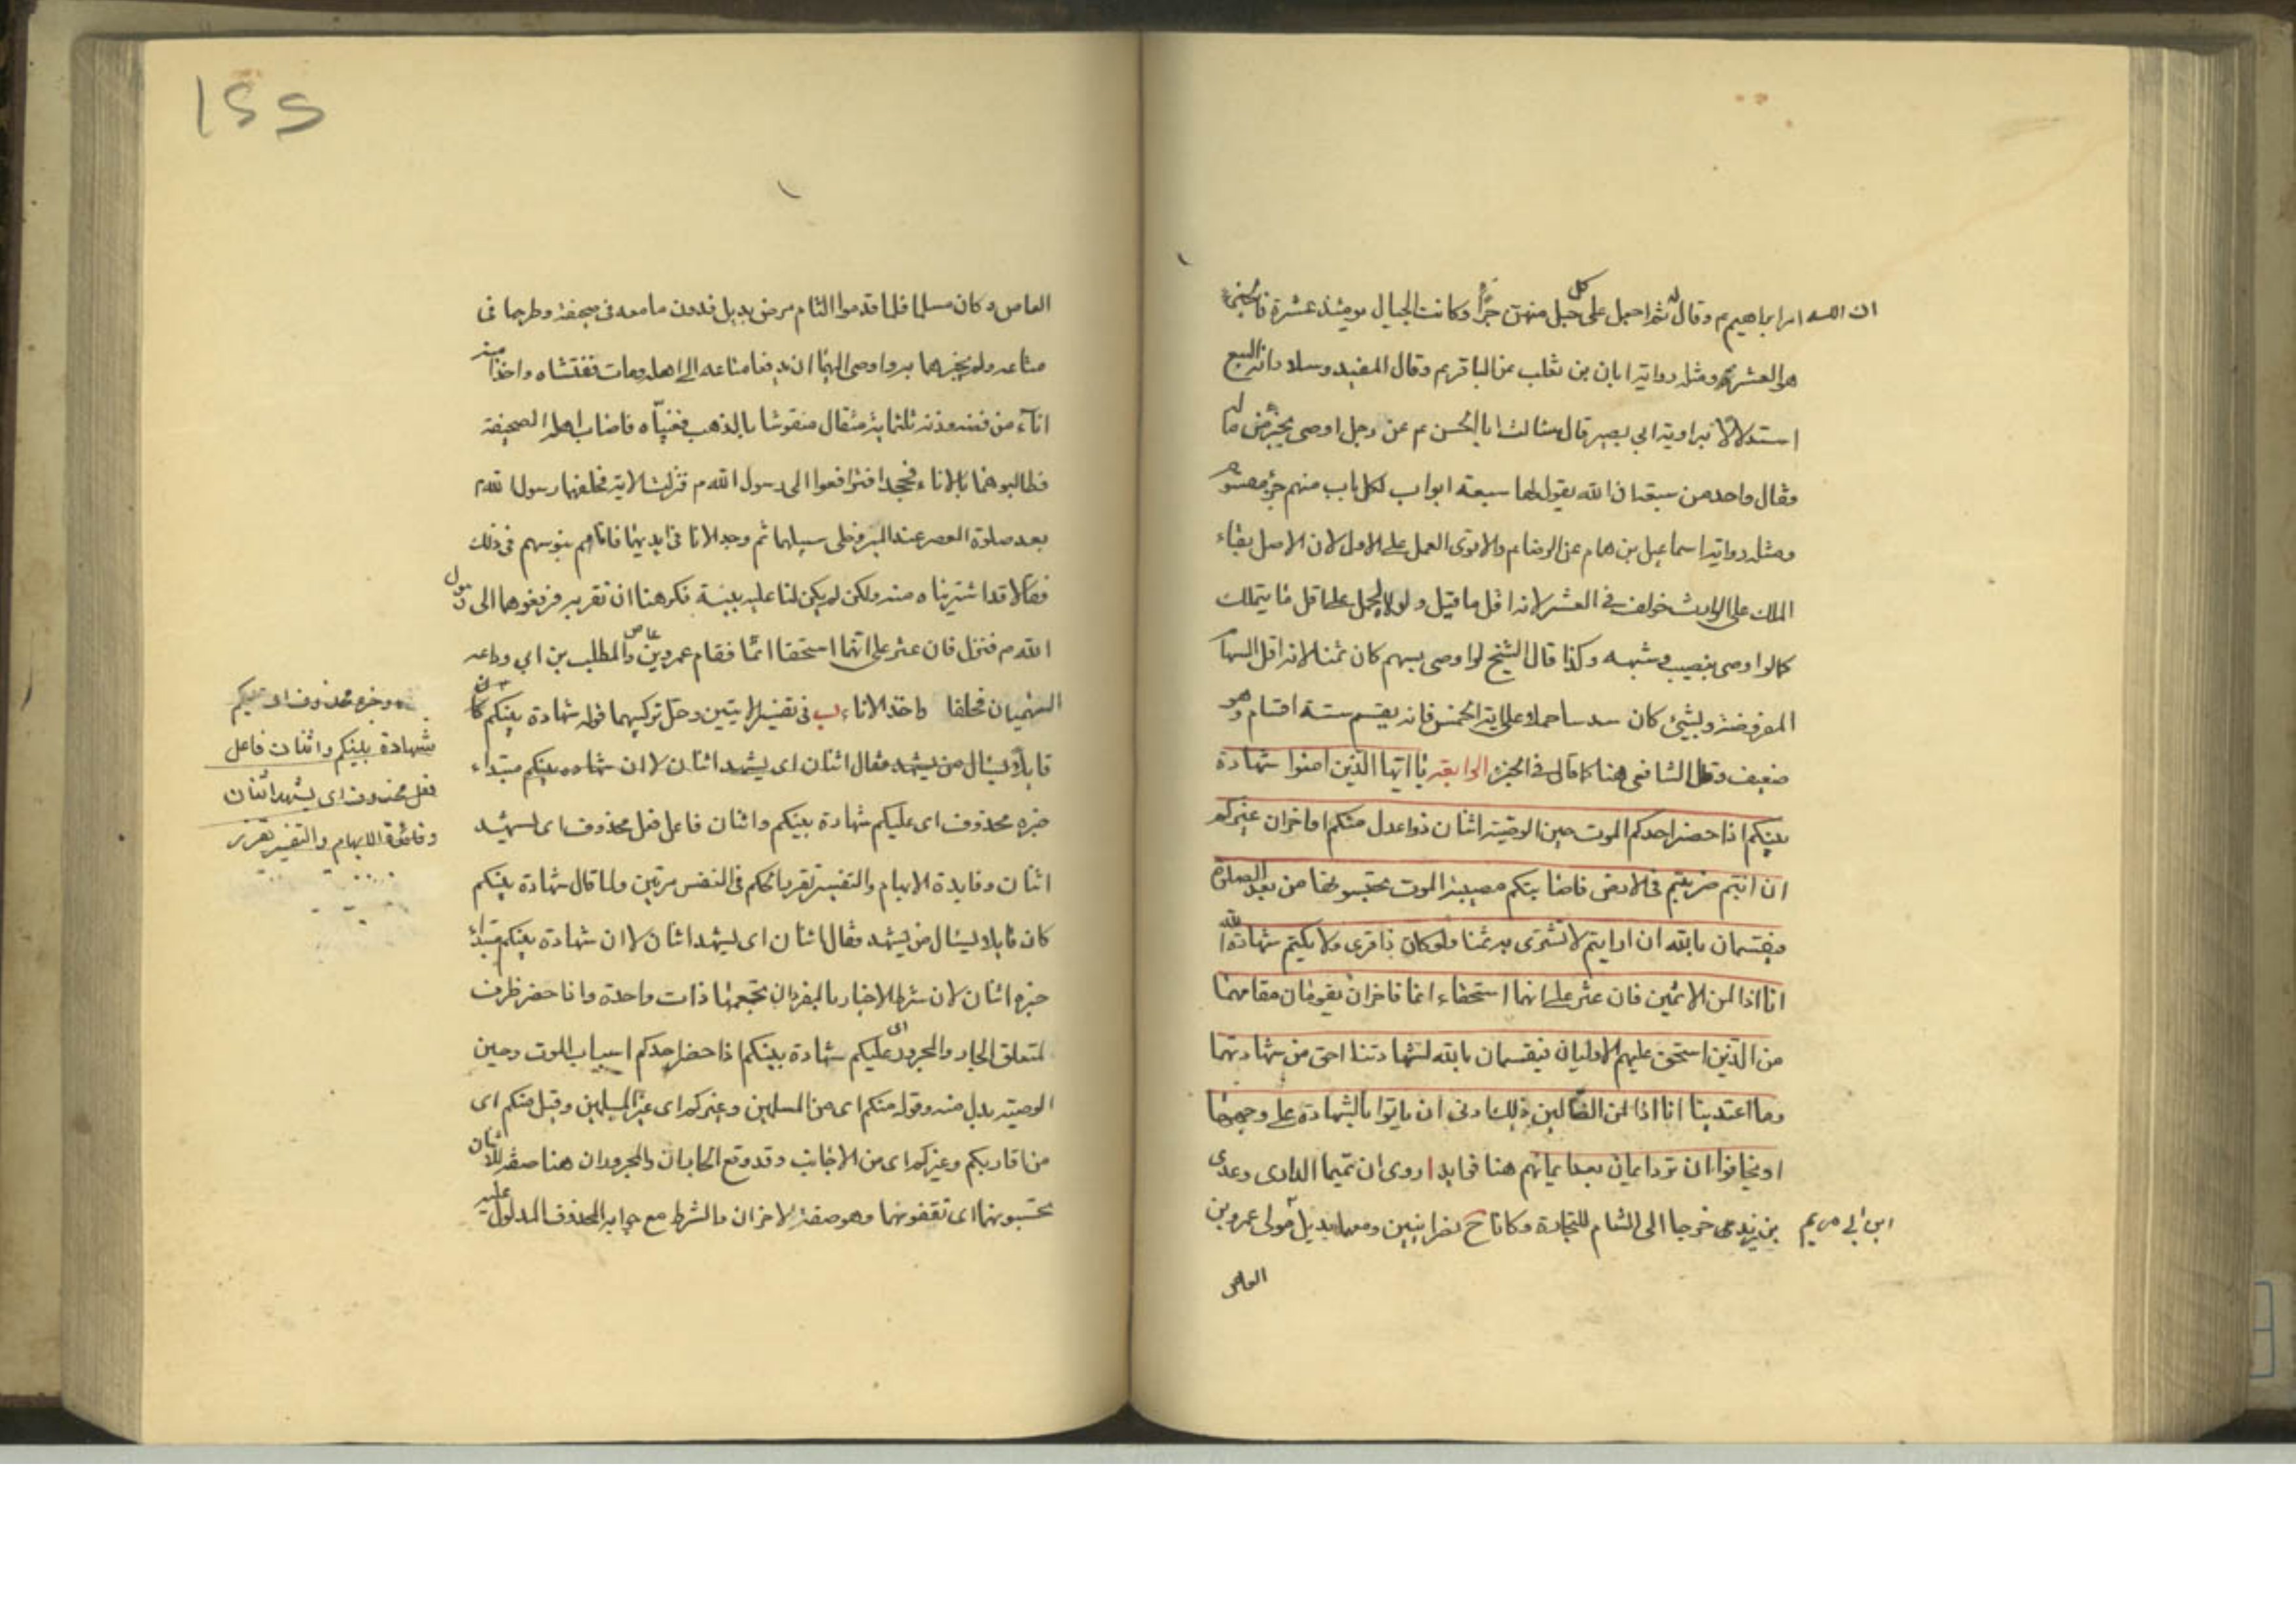 ان الله امر ابراهيم ع وقال له ثم اجعل على كل جبل منهن جزأ وكانت الجبال يومئذ عشرة فالجزء
هو العشر ومثله رواية ابان بن تغلب عن الباقر ع وقال المفيد وسلار انه السبع
استدلالا برواية ابي بصير قال سالت ابا الحسن ع عن رجل اوصى بجزء من ماله
فقال واحد من سبعة ان الله يقول لها سبعة ابواب لكل باب منهم جزء مقسوم
ومثله رواية اسماعيل بن همام عن الرضا ع والاقوى العمل على الاول لان الاصل بقاء
الملك على الوارث خولف في العشر لانه اقل ما قيل ولولا الحمل على اقل ما يتملك
كما لو اوصى بنصيب وشبهه وكذا قال الشيخ لو اوصى بسهم كان ثمنا لانه اقل السهام
المفروضة وبشيئ كان سدسا حملا على اية الخمس فانه يقسم ستة اقسام وهو
ضعيف وقال الشافعي هنا كما قال في الجزء الرابعة يا ايها الذين امنوا شهادة
بينكم اذا حضر احدكم الموت حين الوصية اثنان ذوا عدل منكم او اخران من غيركم
ان انتم ضربتم في الارض فاصابتكم مصيبة الموت تحبسونهما من بعد الصلوة
فيقسمان بالله ان ارتبتم لا نشترى به ثمنا ولو كان ذا قربى ولا نكتم شهادة الله
انا اذا لمن الاثمين فان عثر على انهما استحقا اثما فاخران يقومان مقامهما
من الذين استحق عليهم الاوليان فيقسمان بالله لشهادتنا احق من شهادتهما
وما اعتدينا انا اذا لمن الضالين ذلك ادنى ان ياتوا بالشهادة على وجهها
او يخافوا ان ترد ايمان بعد ايمانهم هنا فوايد ا روى ان تميما الدارى وعدى
بن زيد خرجا الى الشام للتجارة وكانا ح نصرانيين ومعهما بديل مولى عمرو بن
ابن ابي مريم
العاص
١٥٥
العاص وكان مسلما فلما قدموا الشام مرض بديل فدون ما معه في صحيفة وطرحها في
متاعه ولم يخبرهما به واوصى اليهما ان يدفعا متاعه الى اهله ومات ففتشاه واخذا منه
اناء من فضة وزنه ثلثمائة مثقال منقوشا بالذهب فغيباه فاصاب اهله الصحيفة
فطالبوهما بالاناء فجحدا فترافعوا الى رسول الله ص فنزلت الاية فحلفهما رسول الله ص
بعد صلوة العصر عند المنبر وخلى سبيلهما ثم وجد الانا في ايديهما فاتاهم بنو سهم في ذلك
فقالا قد اشتريناه منه ولكن لم يكن لنا عليه بينة فكرهنا ان نقر به فرفعوهما الى رسول
الله ص فنزل فان عثر على انهما استحقا اثما فقام عمرو بن عاص والمطلب بن ابي وداعه
السهميان فحلفا واخذ الاناء ب في تفسير الايتين وحل تركيبهما قوله شهادة بينكم كان
قايلا يسال من يشهد فقال اثنان اى يشهد اثنان لا ان شهاده بينكم مبتداء
خبره محذوف اى عليكم شهادة بينكم واثنان فاعل فعل محذوف اى ليشهد
اثنان وفايدة الابهام والتفسير تقرير الحكم في النفس مرتين ولما قال شهادة بينكم
كان قايلا يسال من يشهد فقال اثنان اى ليشهد اثنان لا ان شهادة بينكم مبتدا
خبره اثنان لان شرط الاخبار بالمفرد ان تجمعهما ذات واحدة واذا حضر ظرف
لمتعلق الجار والمجرور اى عليكم شهادة بينكم اذا حضر احدكم اسباب الموت وحين
الوصية بدل منه وقوله منكم اى من المسلمين وغيركم اى غير المسلمين وقيل منكم اى
من اقاربكم وغيركم اى من الاجانب وقد وقع الجاران والمجروران هنا صفة للاثنان
تحبسونهما اى تقفونهما وهو صفة لاخران والشرط مع جوابه المحذوف المدلول عليه
وخبره محذوف اى عليكم
شهادة بينكم واثنان فاعل
فعل محذوف اى يشهد اثنان
وفائدة الابهام والتفسير تقرير